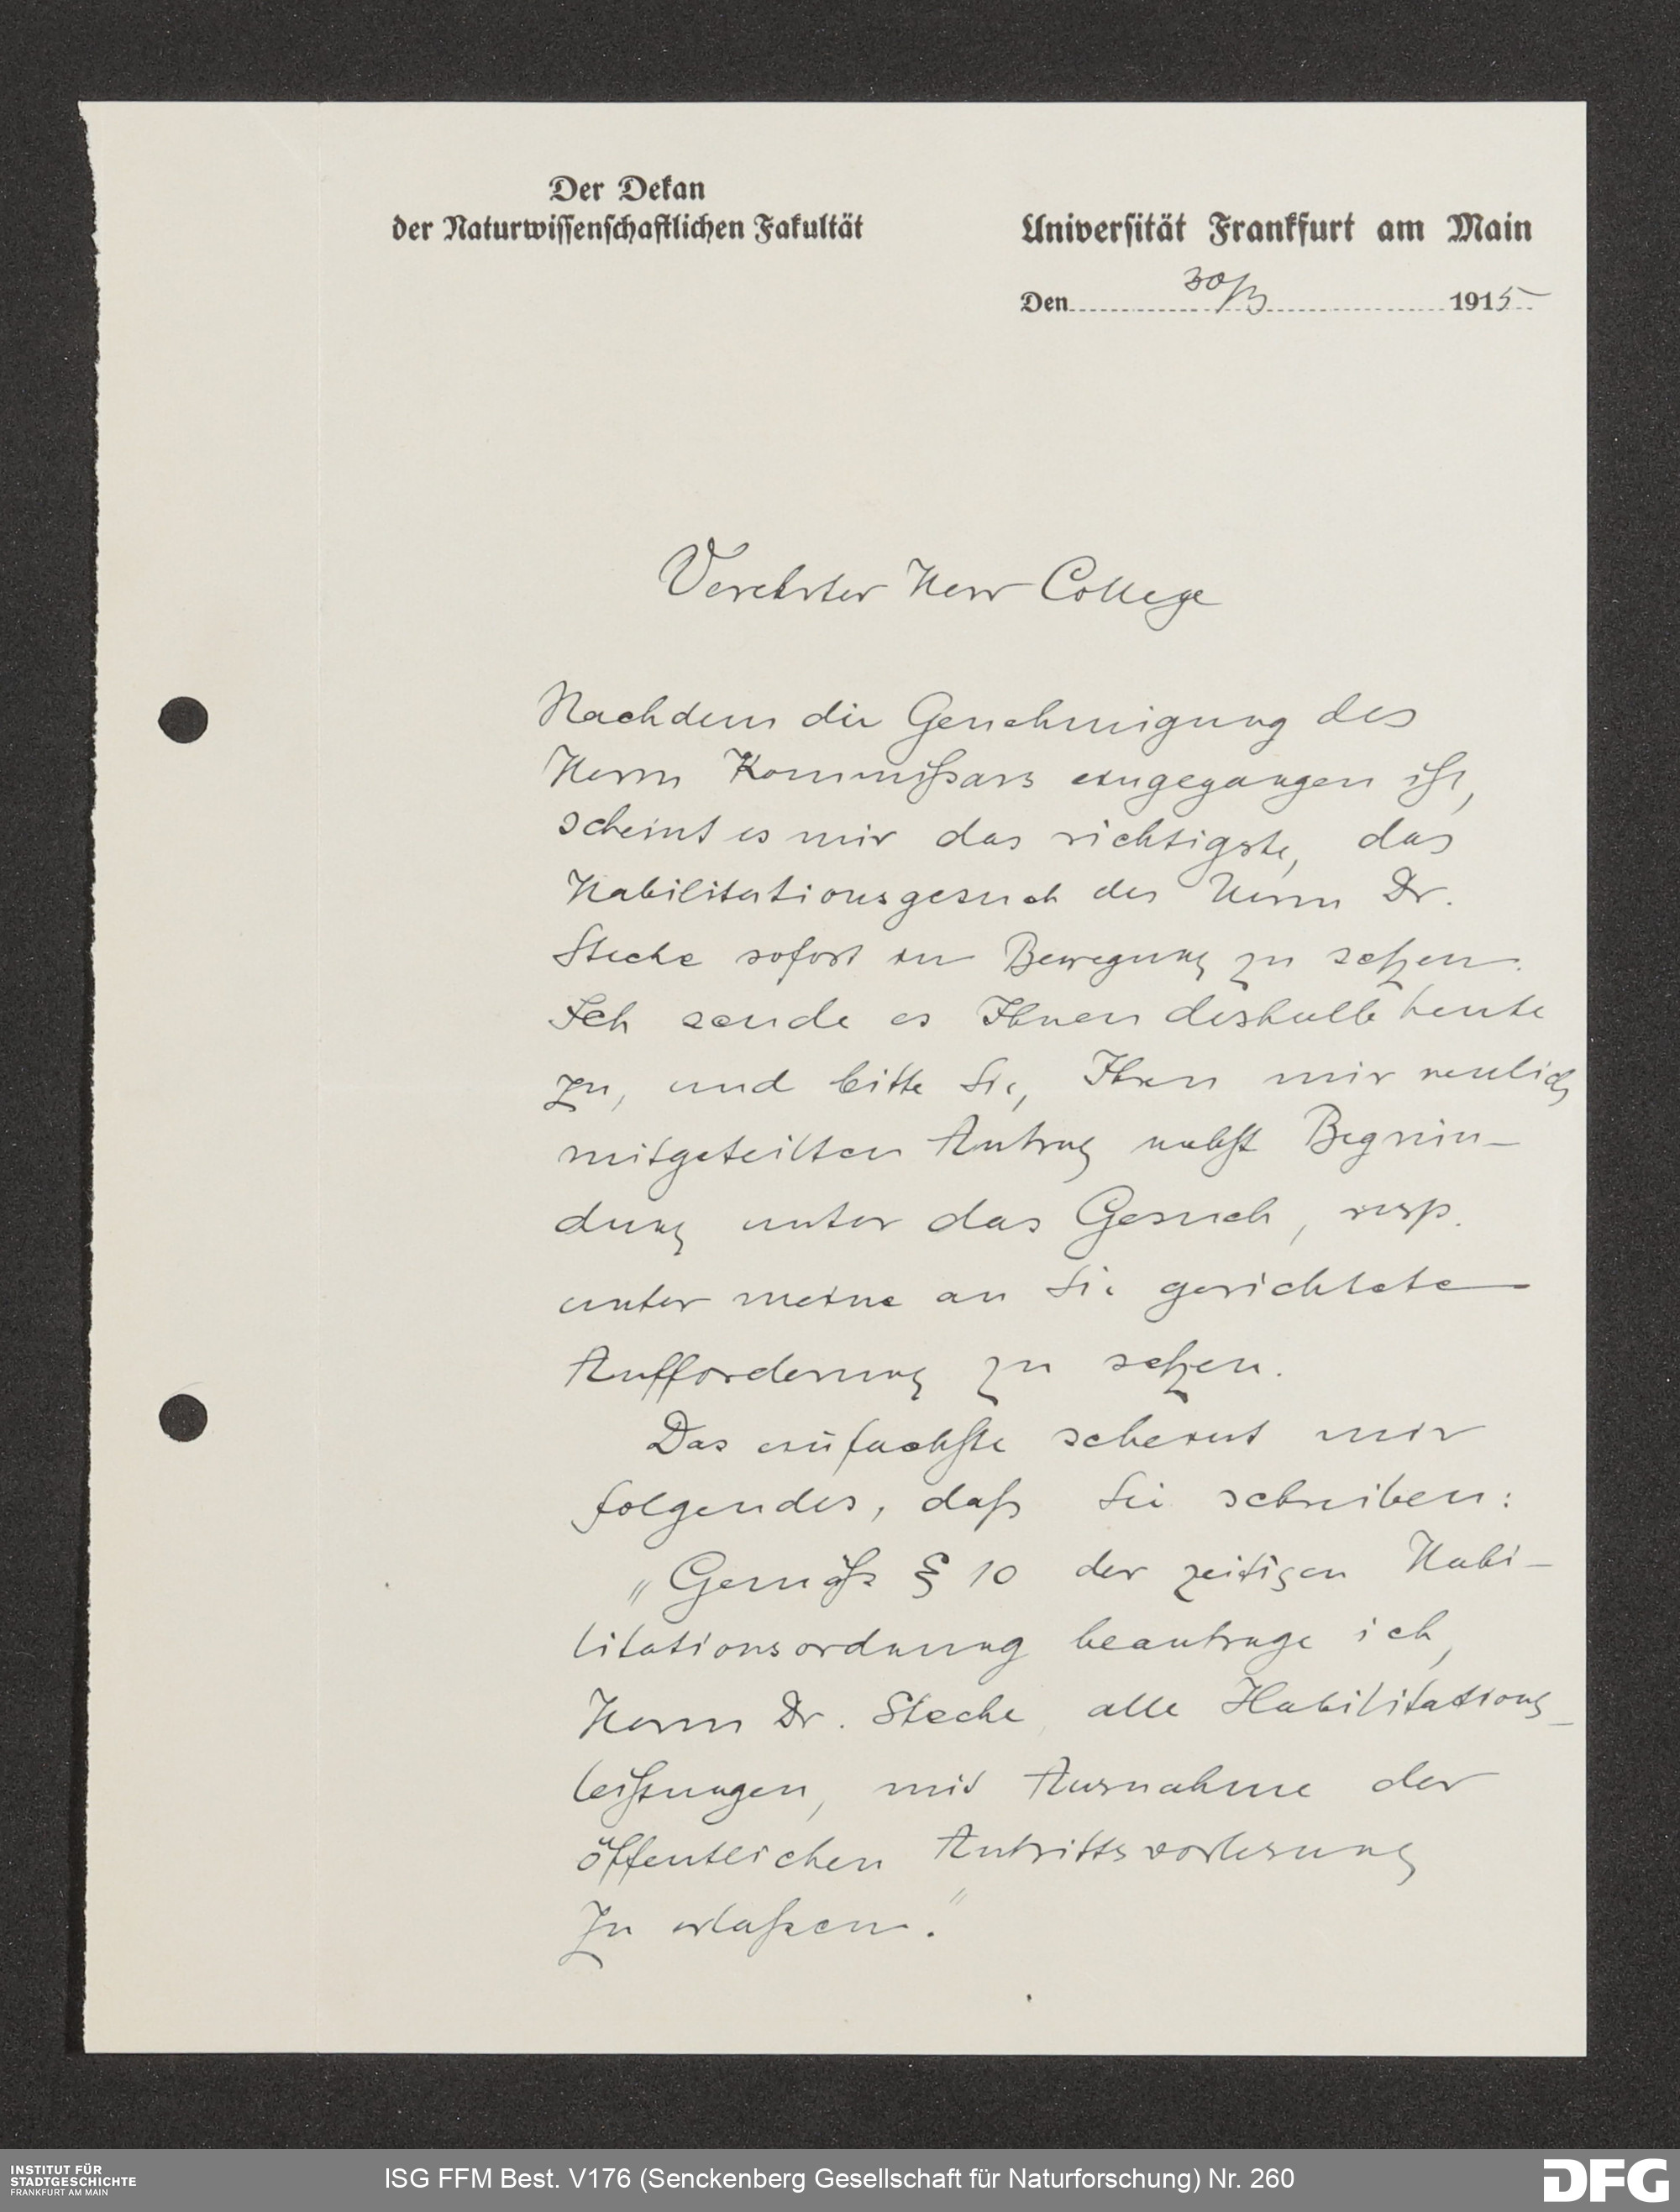 Der Dekan
der Naturwissenschaftlichen Fakultät
Universität Frankfurt am Main
Den 30/3 1915
Verehrter Herr College
Nachdem die Genehmigung des
Herrn Kommißars eingegangen ist,
scheint es mir das richtigste, das
Habilitationsgesuch des Herrn Dr.
Steche sofort in Bewegung zu setzen.
Ich sende es Ihnen deshalb heute
zu, und bitte Sie, Ihren mir neulich
mitgeteilten Antrag nebst Begrün-
dung unter das Gesuch, resp.
unter meine an Sie gerichtete
Aufforderung zu setzen.
Das einfachste scheint mir
folgendes, daß Sie schreiben:
„Gemäß § 10 der zeitigen Habi-
litationsordnung beantrage ich,
Herrn Dr. Steche, alle Habilitations-
leistungen, mit Ausnahme der
öffentlichen Antrittsvorlesung
zu erlaßen."
INSTITUT FÜR
STADTGESCHICHTE
FRANKFURT AM MAIN
ISG FFM Best. V176 (Senckenberg Gesellschaft für Naturforschung) Nr. 260
DFG